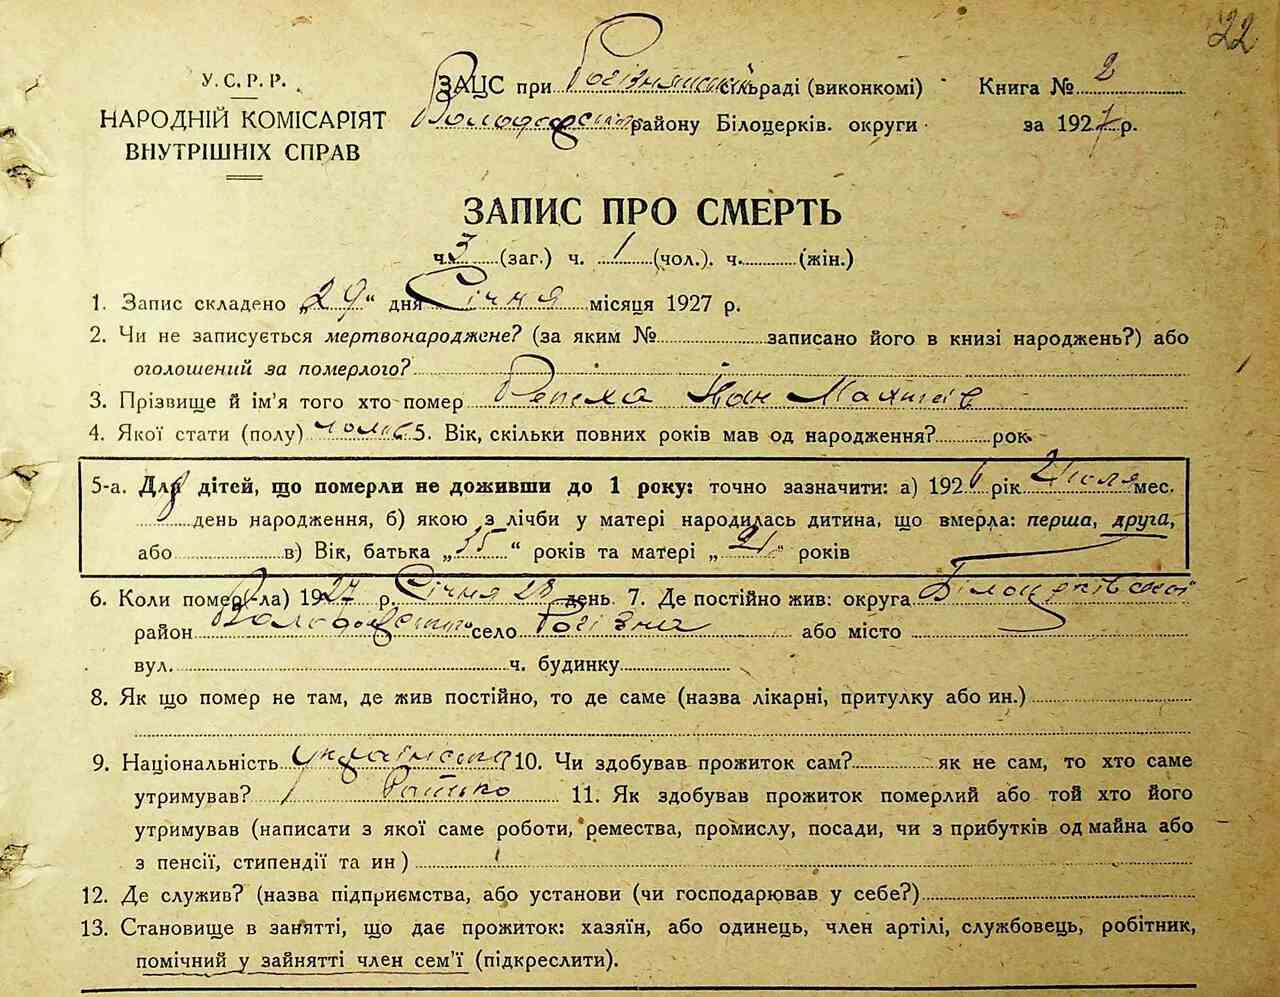 22
У.С.Р.Р.
НАРОДНІЙ КОМІСАРІЯТ
ВНУТРІШНІХ СПРАВ
ЗАЦС при сільраді (виконкомі) Книга № 2
району Білоцерків. округи за 1927 р.
ЗАПИС ПРО СМЕРТЬ
ч. 3 (заг.) ч. 1 (чол.). ч. (жін.)
1. Запис складено „29“ дня Січня місяця 1927 р.
2. Чи не записується мертвонароджене? (за яким № записано його в книзі народжень?) або
оголошений за померлого?
3. Прізвище й ім'я того хто помер Репеха Іван
4. Якої стати (полу) чолов 5. Вік, скільки повних років мав од народження? рок.
5-а. Для дітей, що померли не доживши до 1 року: точно зазначити: а) 1926 рік мес.
день народження, б) якою з лічби у матері народилась дитина, що вмерла: перша, друга,
або в) Вік, батька „35“ років та матері „21“ років
6. Коли помер(-ла) 1927 р. Січня 28 день 7. Де постійно жив: округа Білоцерківської
район село Рогізна або місто
вул. ч. будинку
8. Як що помер не там, де жив постійно, то де саме (назва лікарні, притулку або ин.)
9. Національність 10. Чи здобував прожиток сам? як не сам, то хто саме
утримував? Батько 11. Як здобував прожиток померлий або той хто його
утримував (написати з якої саме роботи, ремества, промислу, посади, чи з прибутків од майна або
з пенсії, стипендії та ин)
12. Де служив? (назва підприємства, або установи (чи господарював у себе?)
13. Становище в занятті, що дає прожиток: хазяїн, або одинець, член артілі, службовець, робітник,
помічний у зайнятті член сем'ї (підкреслити).